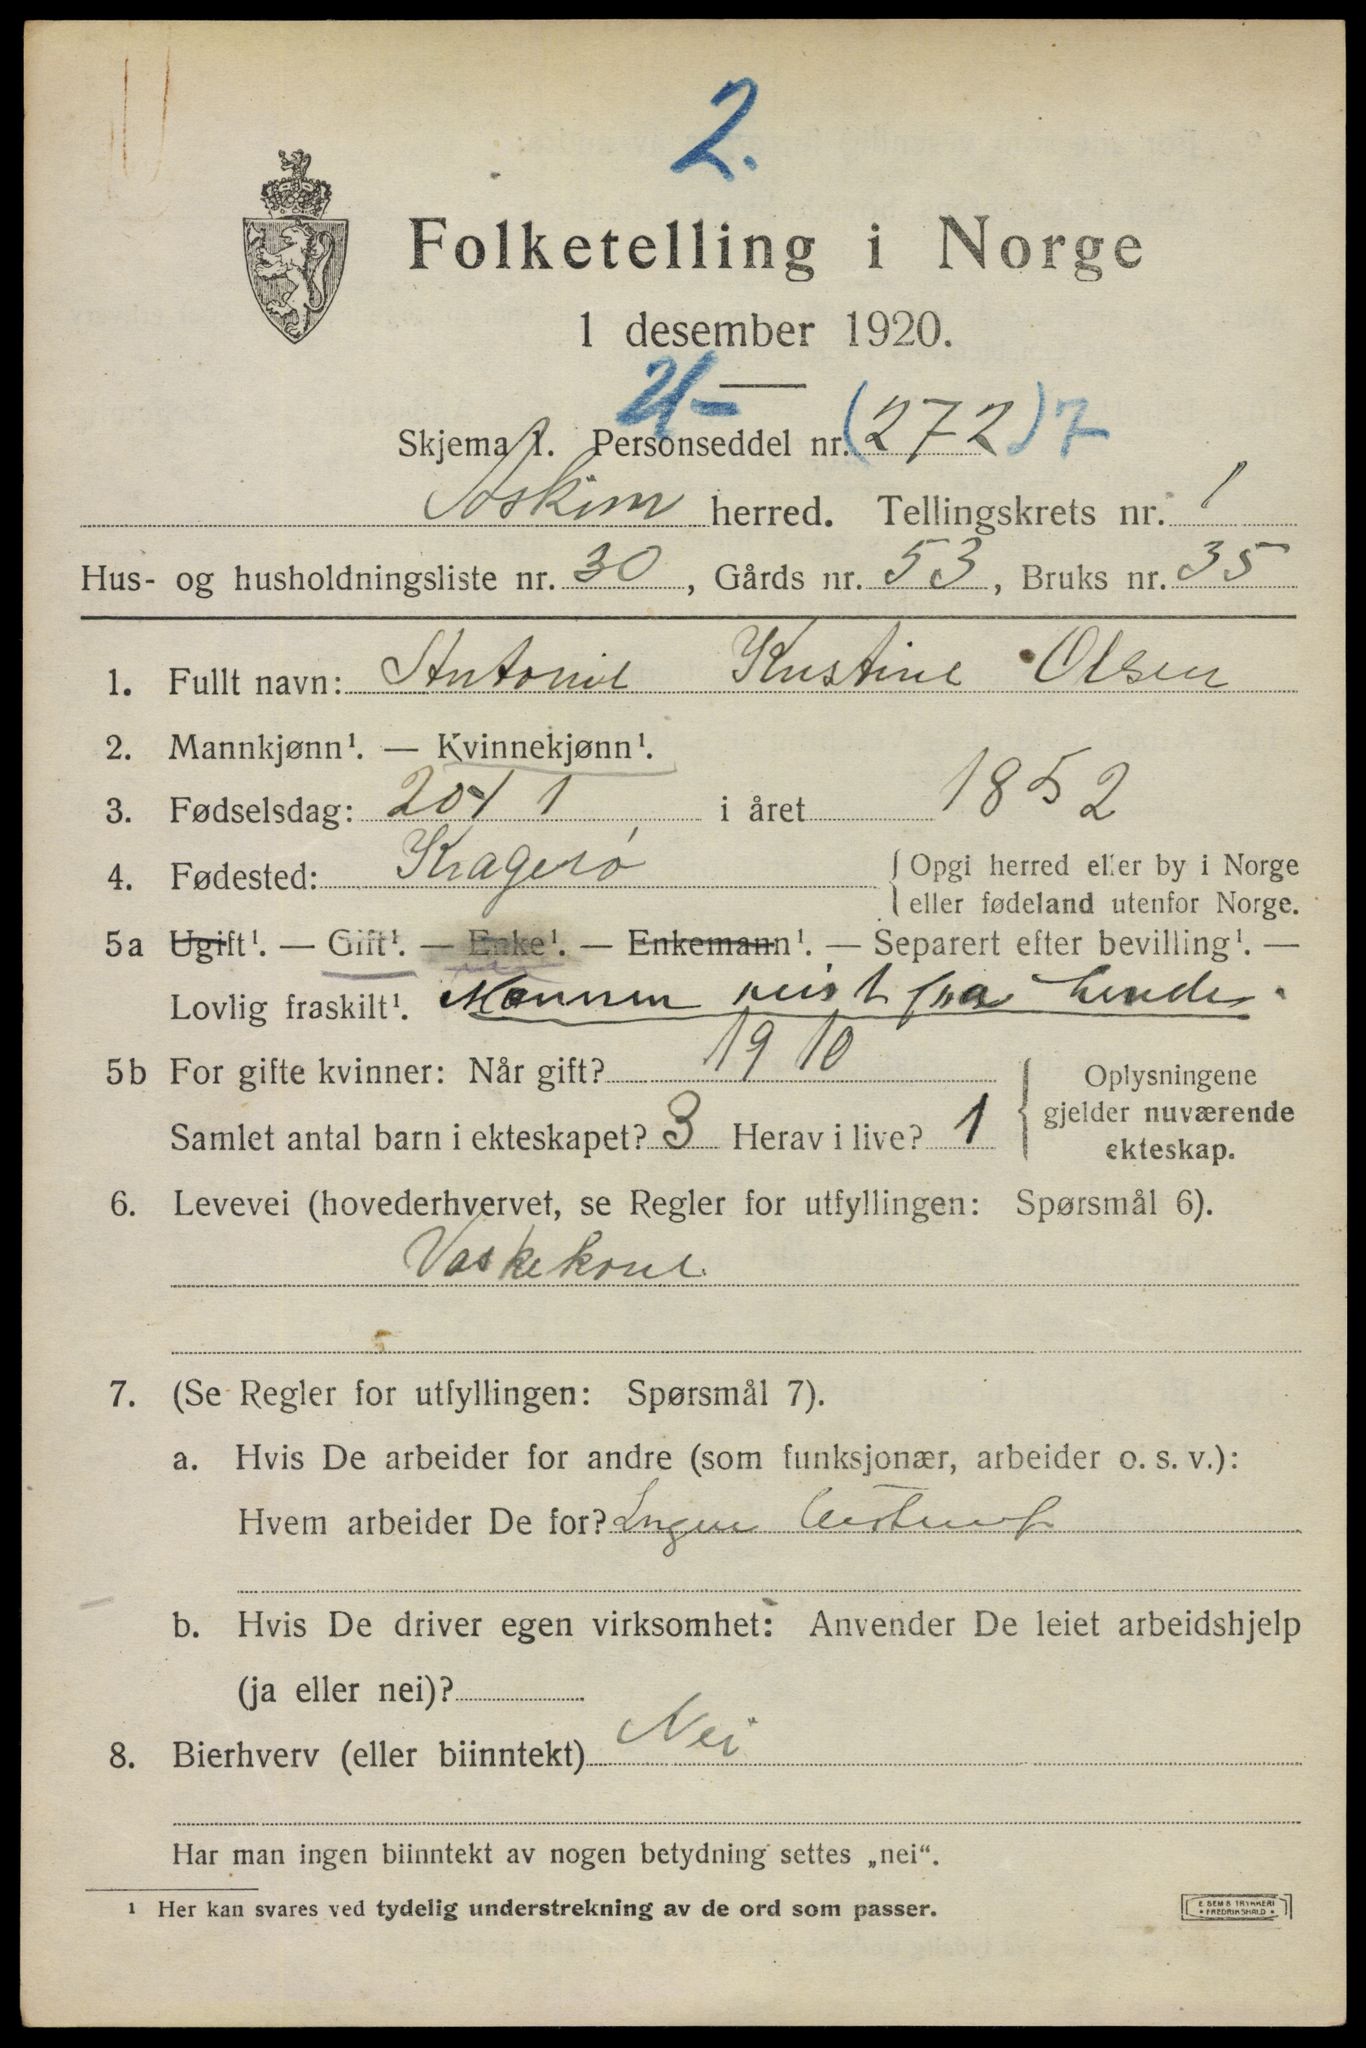 2.
Folketelling i Norge
1 desember 1920.
Skjema 1. Personseddel nr. (272) 7
Askim herred. Tellingskrets nr. 1
Hus- og husholdningsliste nr. 30, Gårds nr. 53, Bruks nr. 35
1. Fullt navn: Antonie Kristine Olsen
2. Mannkjønn¹. — Kvinnekjønn¹.
3. Fødselsdag: 20/1 i året 1852
4. Fødested: Kragerø { Opgi herred eller by i Norge
eller fødeland utenfor Norge.
5a Ugift¹. — Gift¹. — Enke¹. — Enkemann¹. — Separert efter bevilling¹. —
Lovlig fraskilt¹. Mannen reist fra hende.
5b For gifte kvinner: Når gift? 1910
Samlet antal barn i ekteskapet? 3 Herav i live? 1
{ Oplysningene
gjelder nuværende
ekteskap.
6. Levevei (hovederhvervet, se Regler for utfyllingen: Spørsmål 6).
Vaskekone
7. (Se Regler for utfyllingen: Spørsmål 7).
a. Hvis De arbeider for andre (som funksjonær, arbeider o. s. v.):
Hvem arbeider De for?
b. Hvis De driver egen virksomhet: Anvender De leiet arbeidshjelp
(ja eller nei)?
8. Bierhverv (eller biinntekt) Nei
Har man ingen biinntekt av nogen betydning settes „nei“.
¹ Her kan svares ved tydelig understrekning av de ord som passer.
E. SEM'S TRYKKERI
FREDRIKSHALD